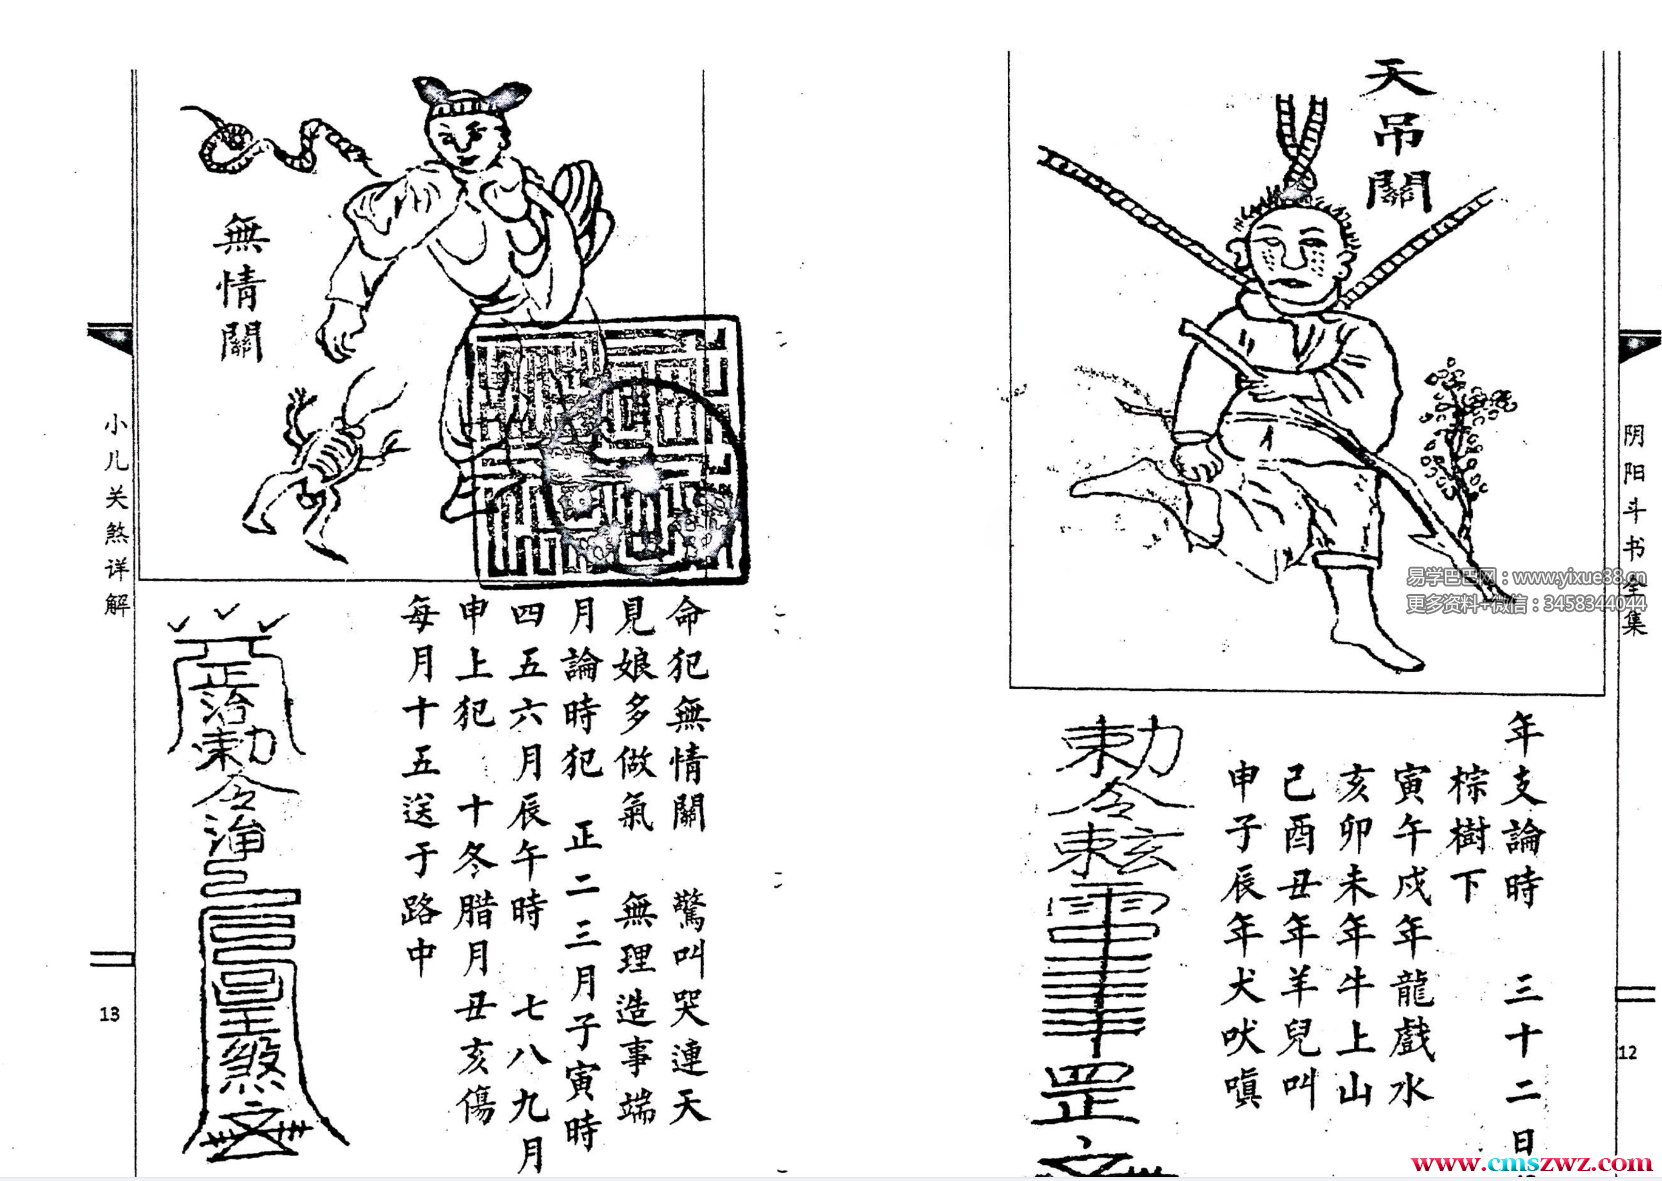 天吊關
年支論時 三十二日
棕樹下
寅午戍年龍戲水
亥卯未年牛上山
己酉丑年羊兒叫
申子辰年犬吠嗔
勅令
罡
阴阳斗书全集
12
易学巴巴网：www.yixue88.cn
更多资料+微信：3458344044
無情關
命犯無情關 驚叫哭連天
見娘多做氣 無理造事端
月論時犯 正二三月子寅時
四五六月辰午時 七八九月
申上犯 十冬腊月丑亥傷
每月十五送于路中
正治勅令
煞
小儿关煞详解
13
www.cmszwz.com